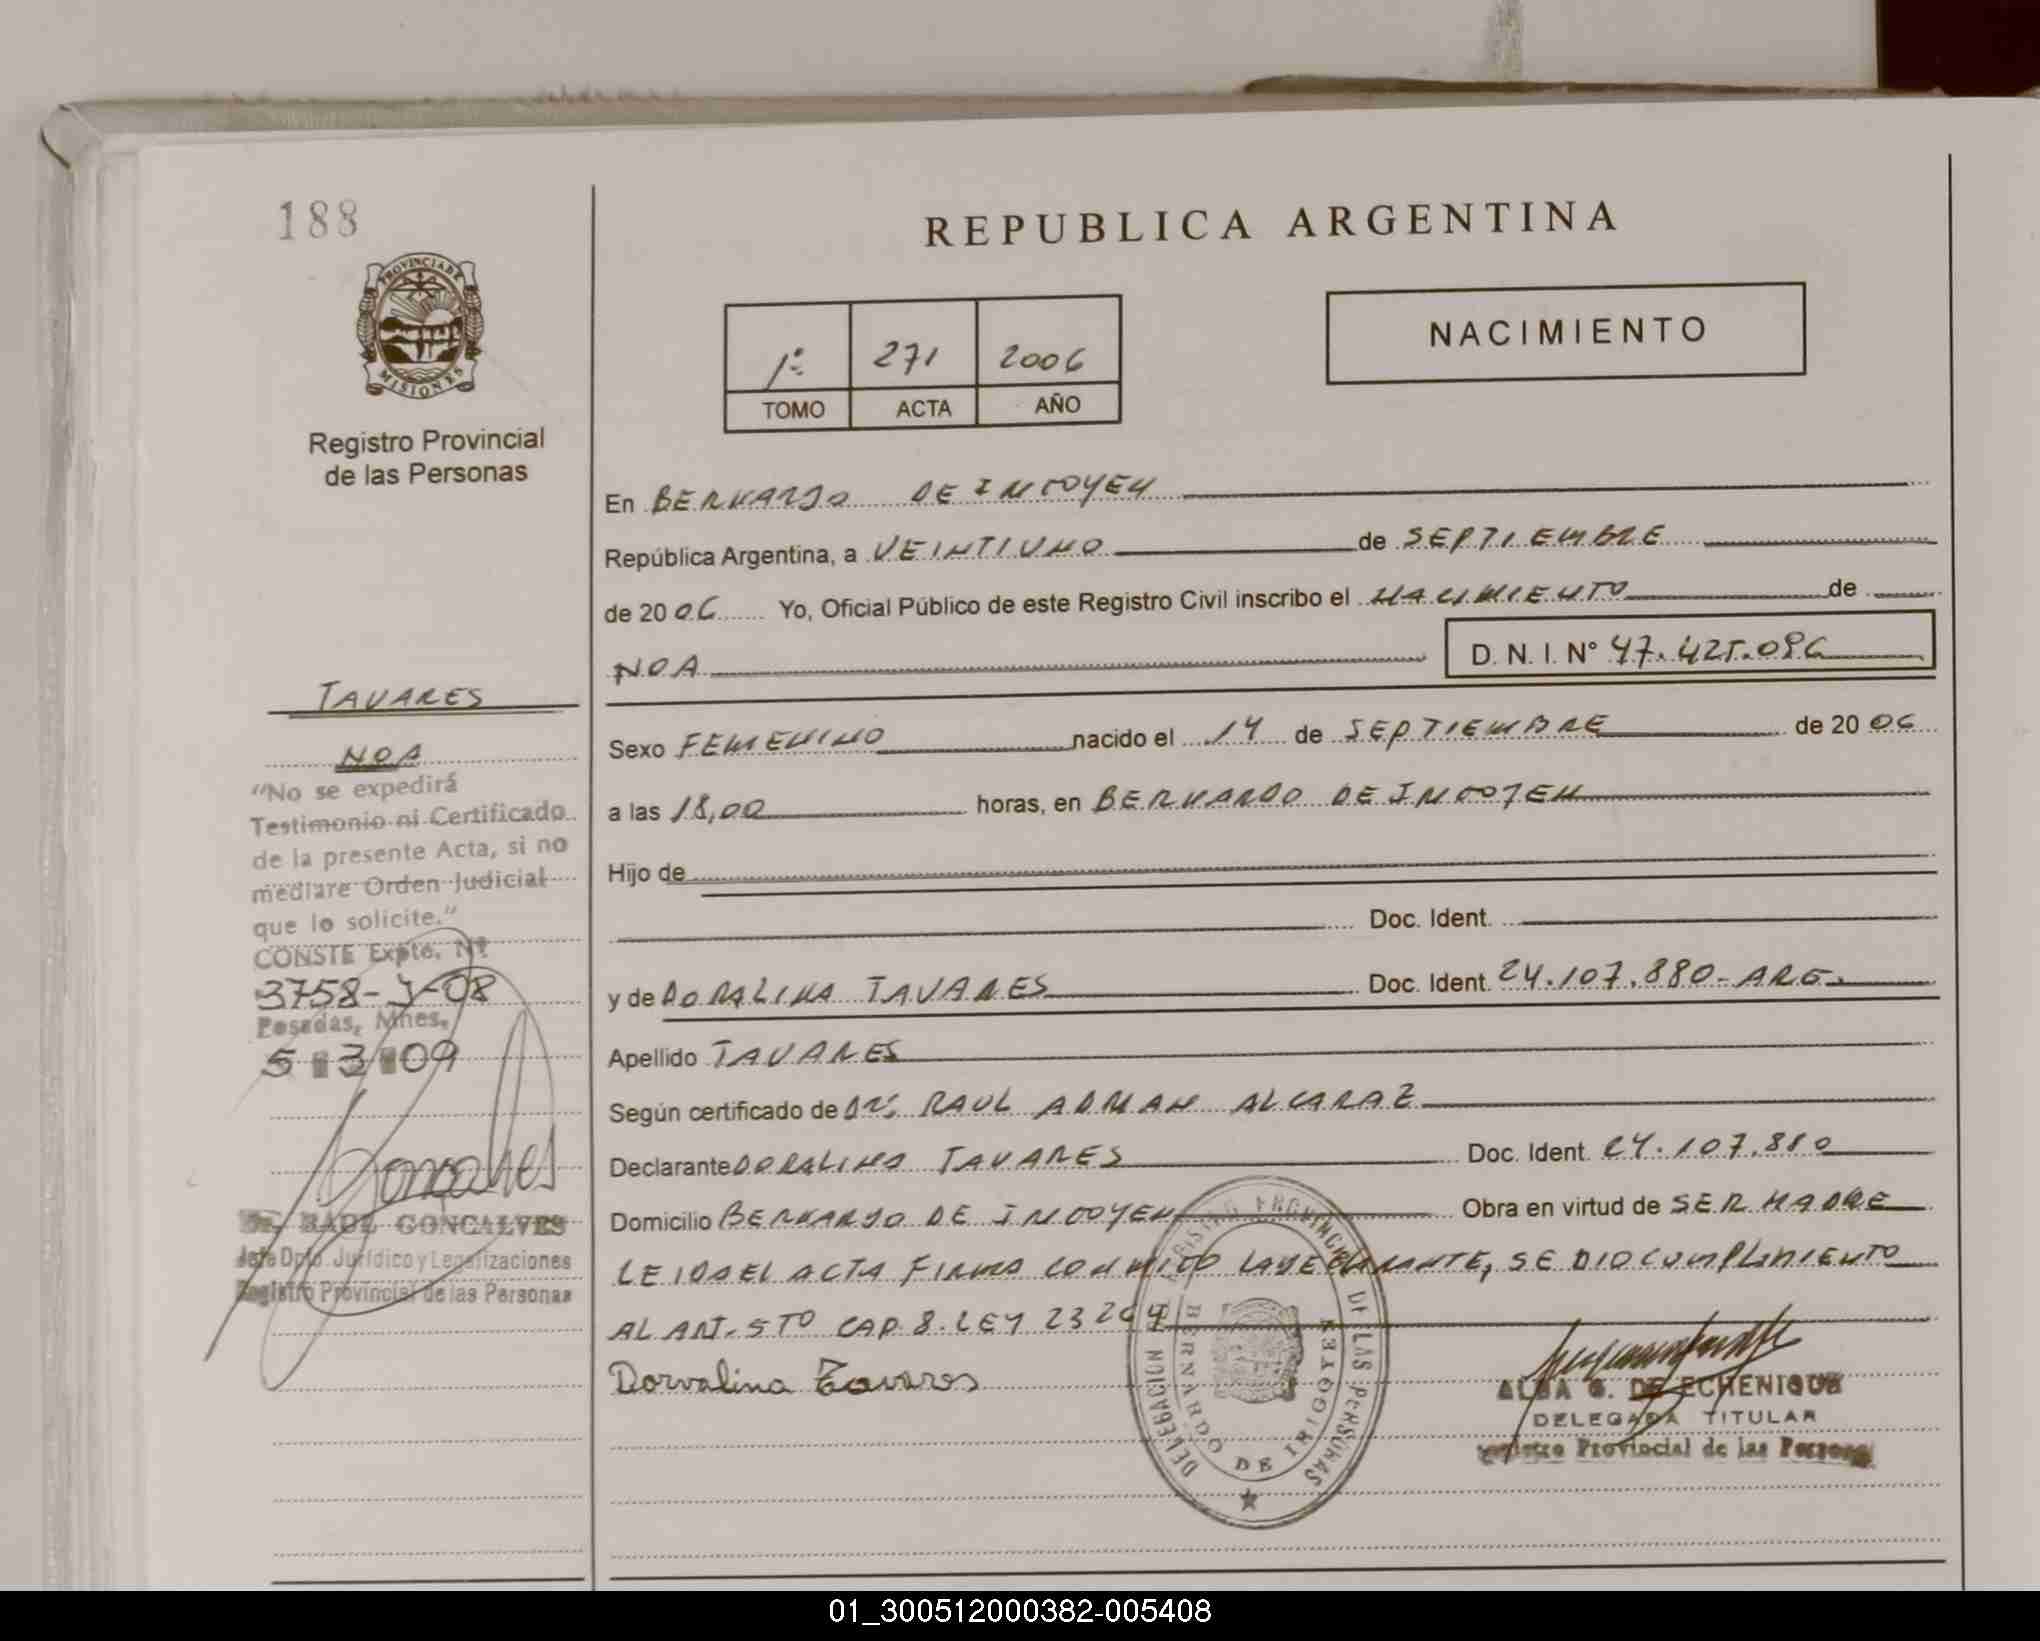 188
PROVINCIA DE
MISIONES
Registro Provincial
de las Personas
TAVARES
NOA
"No se expedirá
Testimonio ni Certificado
de la presente Acta, si no
mediare Orden Judicial
que lo solicite."
CONSTE Expte. Nº
3758-J-08
Posadas, Mnes,
5 3 09
Dr. RAUL GONCALVES
Jefe Dpto. Jurídico y Legalizaciones
Registro Provincial de las Personas
REPUBLICA ARGENTINA
1º 271 2006
TOMO ACTA AÑO
NACIMIENTO
En BERNARDO DE IRIGOYEN
República Argentina, a VEINTIUNO de SEPTIEMBRE
de 20 06 Yo, Oficial Público de este Registro Civil inscribo el NACIMIENTO de
NOA D. N. I. Nº 47.425.096
Sexo FEMENINO nacido el 14 de SEPTIEMBRE de 20 06
a las 18,00 horas, en BERNARDO DE IRIGOYEN
Hijo de
Doc. Ident.
y de DORALINA TAVARES Doc. Ident. 24.107.880-ARG.
Apellido TAVARES
Según certificado de DR. RAUL ADRIAN ALCARAZ
Declarante DORALINA TAVARES Doc. Ident. 24.107.880
Domicilio BERNARDO DE IRIGOYEN Obra en virtud de SER MADRE
LEIDA EL ACTA FIRMA CONMIGO LA DECLARANTE, SE DIO CUMPLIMIENTO
AL ART. 5TO CAP. 8. LEY 23264
Dorvalina Tavares
DELEGACION REGISTRO PROVINCIAL DE LAS PERSONAS
BERNARDO DE IRIGOYEN
ALBA G. DE ECHENIQUE
DELEGADA TITULAR
Registro Provincial de las Personas
01_300512000382-005408